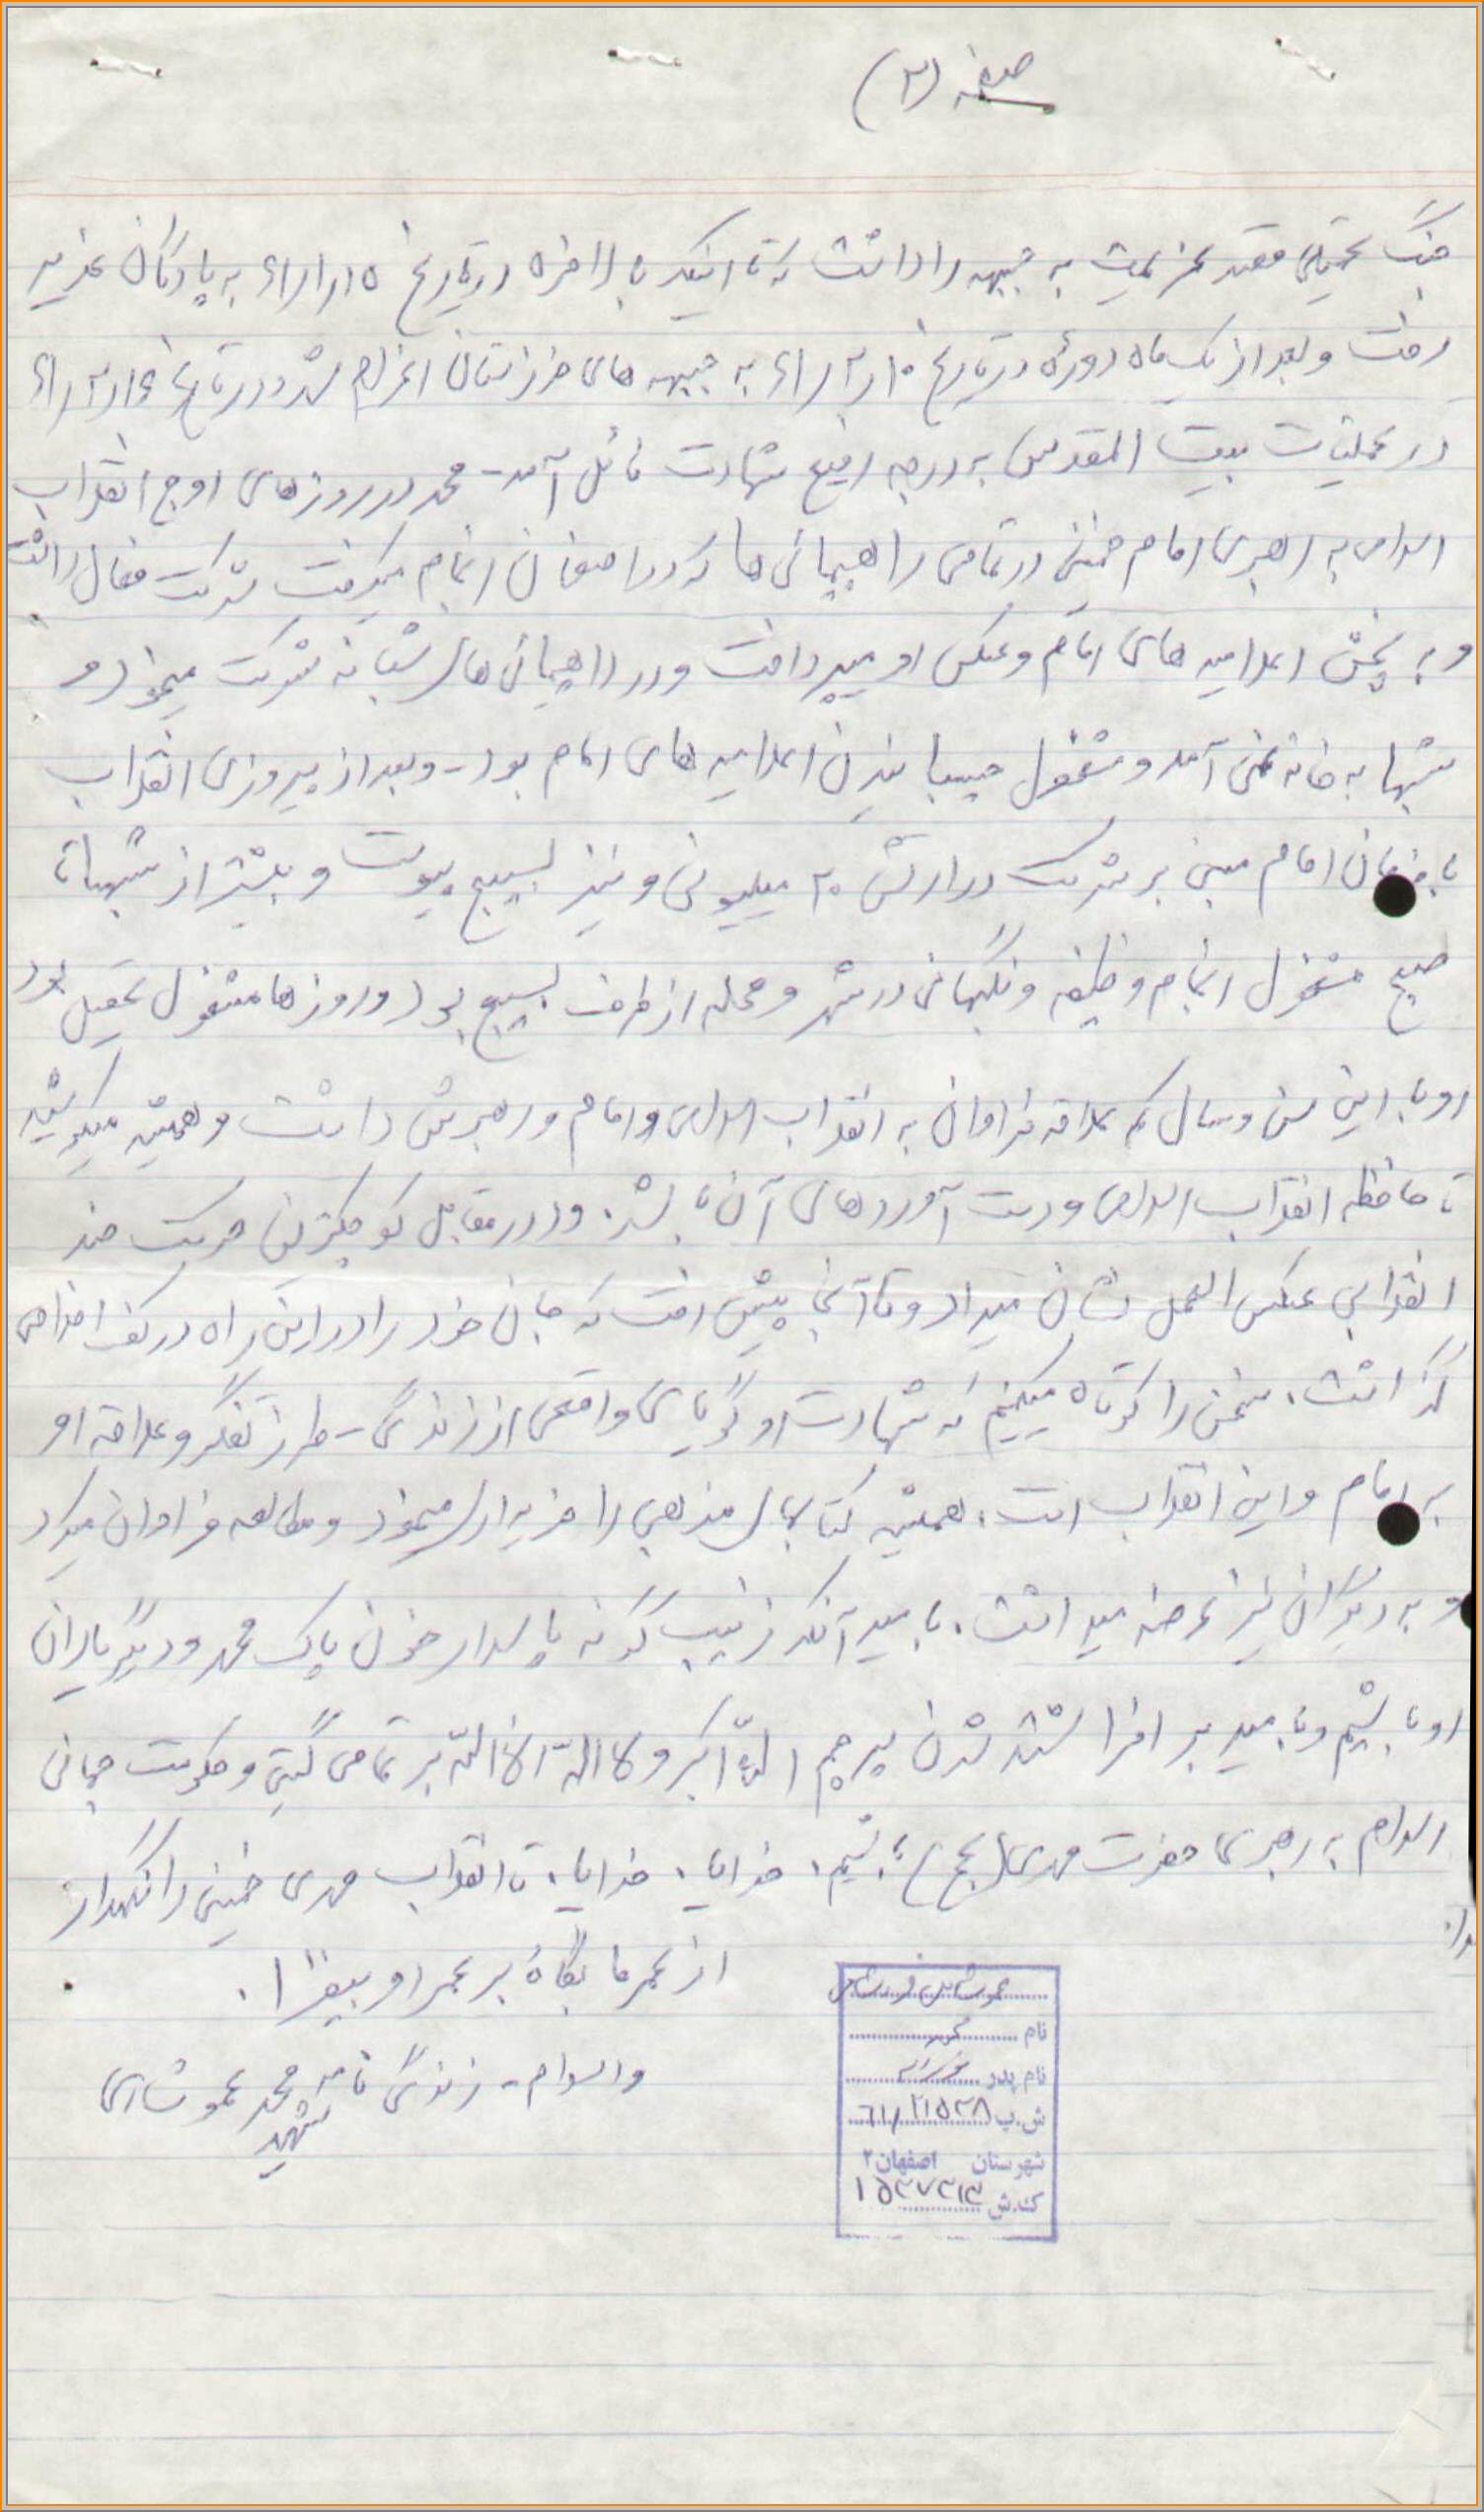 صفحه (۲)
جنگ تحمیلی قصد عزیمت به جبهه را داشت که تا اینکه بالاخره در تاریخ ۱۵ر۱ر۶۱ به پادگان غدیر
رفت و بعد از یک ماه دوره در تاریخ ۱۰ر۲ر۶۱ به جبهه های خوزستان اعزام شد و در تاریخ ۱۶ر۲ر۶۱
در عملیات بیت المقدس به درجه رفیع شهادت نائل آمد - محمد در روزهای اوج انقلاب
اسلامی به رهبری امام خمینی در تمامی راهپیمائی ها که در اصفهان انجام میگرفت شرکت فعال داشت
و به پخش اعلامیه های امام و عکس او میپرداخت و در راهپیمائی های شبانه شرکت مینمود و
شبها به خانه نمی آمد و مشغول چسبانیدن اعلامیه های امام بود - و بعد از پیروزی انقلاب
با فرمان امام مبنی بر شرکت در ارتش ۲۰ میلیونی و نیز بسیج پیوست و بیشتر از شبها تا
صبح مشغول انجام وظیفه و نگهبانی در شهر و محله از طرف بسیج بود و روزها مشغول تحصیل بود
او با این سن و سال کم علاقه فراوان به انقلاب اسلامی و امام و رهبرش داشت و همیشه میکوشید
تا حافظ انقلاب اسلامی و دست آوردهای آن باشد. و در مقابل کوچکترین حرکت ضد
انقلابی عکس العمل نشان میداد و تا آنجا پیش رفت که جان خود را در این راه در کف اخلاص
گذاشت. سخن را کوتاه میکنیم که شهادت او گویای واقعی از زندگی - طرز تفکر و علاقه او
به امام و این انقلاب است. همیشه کتابهای مذهبی را خریداری مینمود و مطالعه فراوان میکرد
و به دیگران نیز عرضه میداشت. بامید آنکه زینب گونه پاسدار خون پاک محمد و دیگر یاران
او باشیم و بامید بر افراشته شدن پرچم الله اکبر و لا اله الا الله بر تمامی گیتی و حکومت جهانی
اسلام به رهبری حضرت مهدی (عج) باشیم. خدایا. خدایا. تا انقلاب مهدی خمینی را نگهدار
از عمر ما بکاه و بر عمر او بیفزا.
والسلام - زندگی نامه شهید محمد عموشاهی
نام محمد
نام پدر
ش.پ ۶۱/۲۱۵۲۸
شهرستان اصفهان ۲
کد.ش ۱۵۲۷۲۱۳